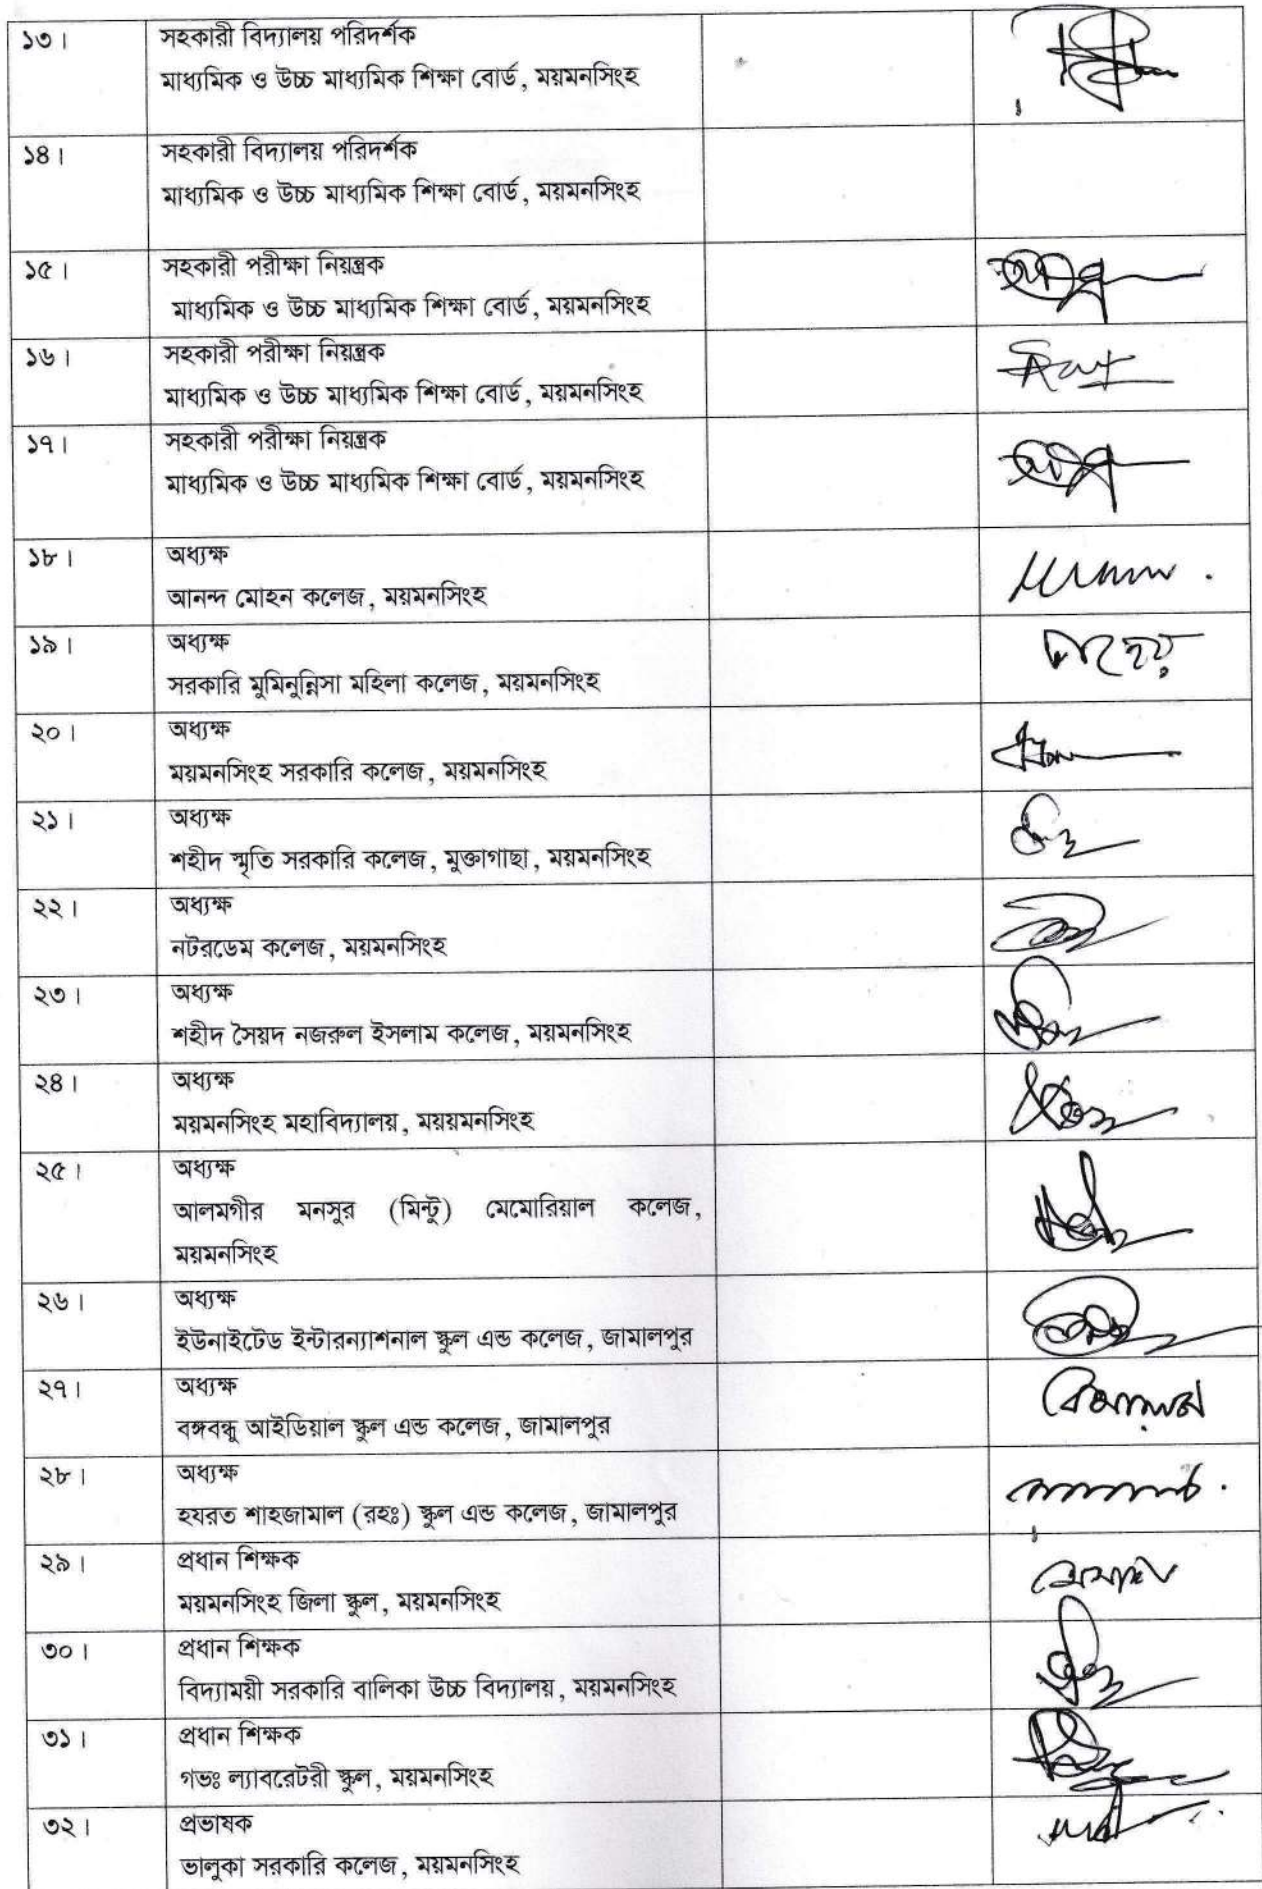 ১৩। সহকারী বিদ্যালয় পরিদর্শক
মাধ্যমিক ও উচ্চ মাধ্যমিক শিক্ষা বোর্ড, ময়মনসিংহ
১৪। সহকারী বিদ্যালয় পরিদর্শক
মাধ্যমিক ও উচ্চ মাধ্যমিক শিক্ষা বোর্ড, ময়মনসিংহ
১৫। সহকারী পরীক্ষা নিয়ন্ত্রক
মাধ্যমিক ও উচ্চ মাধ্যমিক শিক্ষা বোর্ড, ময়মনসিংহ
১৬। সহকারী পরীক্ষা নিয়ন্ত্রক
মাধ্যমিক ও উচ্চ মাধ্যমিক শিক্ষা বোর্ড, ময়মনসিংহ
১৭। সহকারী পরীক্ষা নিয়ন্ত্রক
মাধ্যমিক ও উচ্চ মাধ্যমিক শিক্ষা বোর্ড, ময়মনসিংহ
১৮। অধ্যক্ষ
আনন্দ মোহন কলেজ, ময়মনসিংহ
১৯। অধ্যক্ষ
সরকারি মুমিনুন্নিসা মহিলা কলেজ, ময়মনসিংহ
২০। অধ্যক্ষ
ময়মনসিংহ সরকারি কলেজ, ময়মনসিংহ
২১। অধ্যক্ষ
শহীদ স্মৃতি সরকারি কলেজ, মুক্তাগাছা, ময়মনসিংহ
২২। অধ্যক্ষ
নটরডেম কলেজ, ময়মনসিংহ
২৩। অধ্যক্ষ
শহীদ সৈয়দ নজরুল ইসলাম কলেজ, ময়মনসিংহ
২৪। অধ্যক্ষ
ময়মনসিংহ মহাবিদ্যালয়, ময়য়মনসিংহ
২৫। অধ্যক্ষ
আলমগীর মনসুর (মিন্টু) মেমোরিয়াল কলেজ,
ময়মনসিংহ
২৬। অধ্যক্ষ
ইউনাইটেড ইন্টারন্যাশনাল স্কুল এন্ড কলেজ, জামালপুর
২৭। অধ্যক্ষ
বঙ্গবন্ধু আইডিয়াল স্কুল এন্ড কলেজ, জামালপুর
২৮। অধ্যক্ষ
হযরত শাহজামাল (রহঃ) স্কুল এন্ড কলেজ, জামালপুর
২৯। প্রধান শিক্ষক
ময়মনসিংহ জিলা স্কুল, ময়মনসিংহ
৩০। প্রধান শিক্ষক
বিদ্যাময়ী সরকারি বালিকা উচ্চ বিদ্যালয়, ময়মনসিংহ
৩১। প্রধান শিক্ষক
গভঃ ল্যাবরেটরী স্কুল, ময়মনসিংহ
৩২। প্রভাষক
ভালুকা সরকারি কলেজ, ময়মনসিংহ